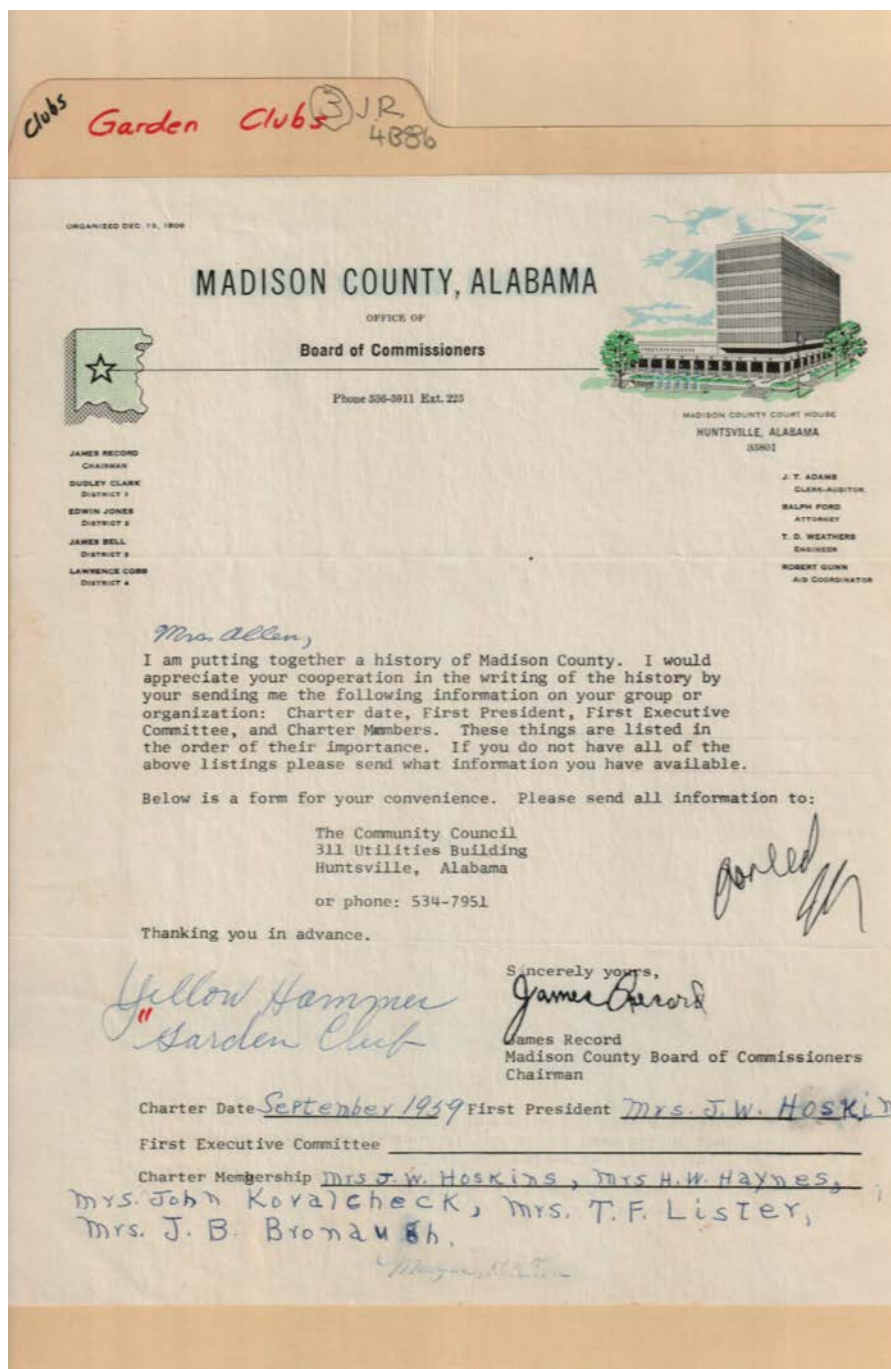 Clubs
Garden Clubs
3
J.R.
4B86
ORGANIZED DEC. 13, 1808
MADISON COUNTY, ALABAMA
OFFICE OF
Board of Commissioners
Phone 536-5911 Ext. 225
MADISON COUNTY COURT HOUSE
HUNTSVILLE, ALABAMA
35801
JAMES RECORD
CHAIRMAN
DUDLEY CLARK
DISTRICT 1
EDWIN JONES
DISTRICT 2
JAMES BELL
DISTRICT 3
LAWRENCE COBB
DISTRICT 4
J. T. ADAMS
CLERK-AUDITOR
RALPH FORD
ATTORNEY
T. D. WEATHERS
ENGINEER
ROBERT GUNN
AID COORDINATOR
Mrs. Allen,
I am putting together a history of Madison County. I would
appreciate your cooperation in the writing of the history by
your sending me the following information on your group or
organization: Charter date, First President, First Executive
Committee, and Charter Members. These things are listed in
the order of their importance. If you do not have all of the
above listings please send what information you have available.
Below is a form for your convenience. Please send all information to:
The Community Council
311 Utilities Building
Huntsville, Alabama
or phone: 534-7951
Thanking you in advance.
Sincerely yours,
James Record
James Record
Madison County Board of Commissioners
Chairman
Yellow Hammer
" Garden Club
Charter Date September 1959 First President Mrs. J.W. Hoskin
First Executive Committee
Charter Membership Mrs J.W. Hoskins, Mrs H.W. Haynes,
Mrs. John Kovalcheck, Mrs. T.F. Lister,
Mrs. J. B. Bronaugh.